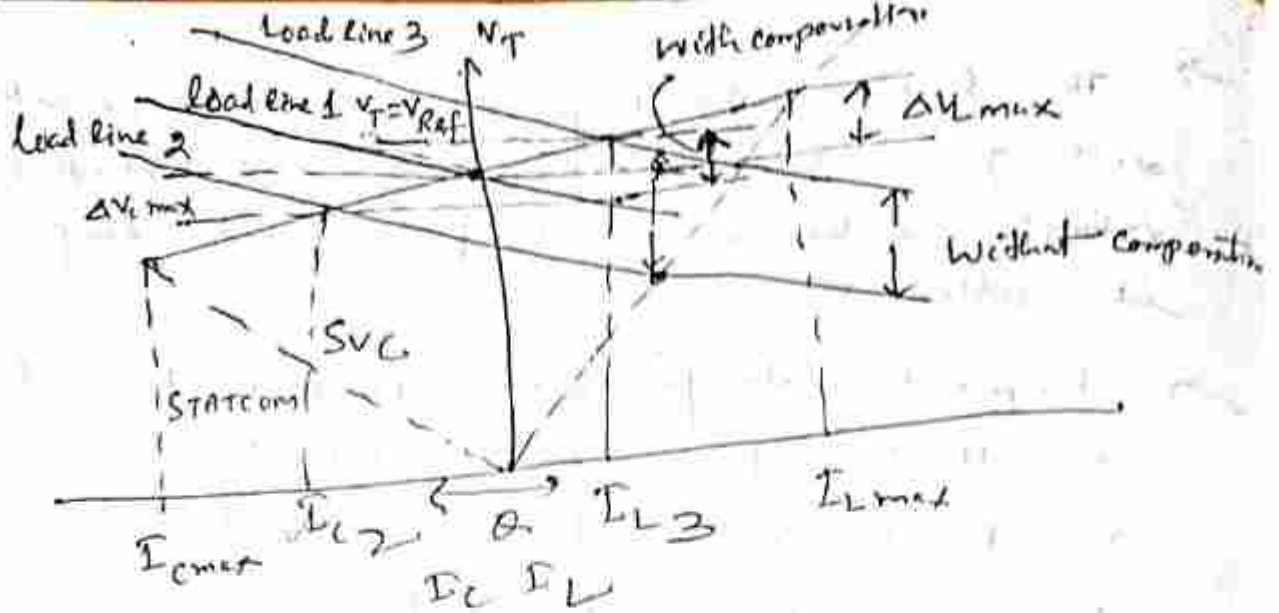 Load line 3
V_T
With compensation
Load line 1 V_T = V_Ref
ΔV_L max
Load line 2
ΔV_c max
Without compensation
SVC
STATCOM
I_cmax
I_c2
0
I_L3
I_Lmax
I_C I_L